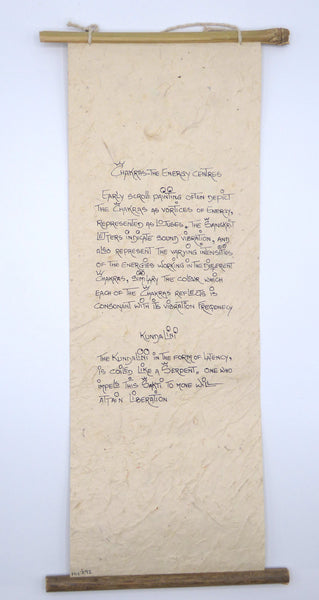 Chakras-The Energy Centres
Early scroll painting often depict
the Chakras as vortices of energy,
represented as lotuses. The Sanskrit
letters indicate sound vibration, and
also represent the varying intensities
of the energies working in the different
Chakras, similary the colour which
each of the Chakras reflects is
consonant with its vibration freqhency
Kundalini
The Kundalini in the form of latency.
is coiled like a serpent. One who
impels this Shakti to move will
attain liberation